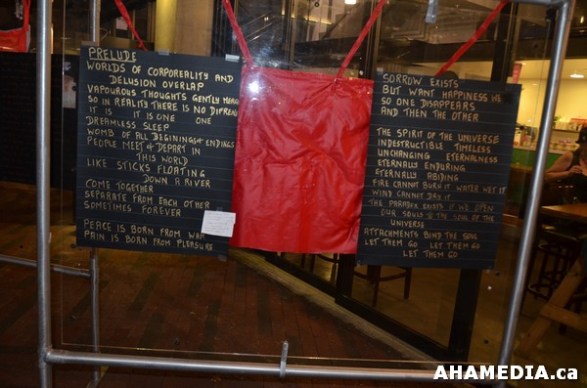 PRELUDE
WORLDS OF CORPOREALITY AND
DELUSION OVERLAP
VAPOUROUS THOUGHTS GENTLY
SO IN REALITY THERE IS NO
IT IS IT IS ONE ONE
DREAMLESS SLEEP
WOMB OF ALL BEGININGS + ENDINGS
PEOPLE MEET & DEPART IN
THIS WORLD
LIKE STICKS FLOATING
DOWN A RIVER
COME TOGETHER
SEPARATE FROM EACH OTHER
SOMETIMES FOREVER
PEACE IS BORN FROM WAR
PAIN IS BORN FROM PLEASURE
SORROW EXISTS
BUT WANT HAPPINESS WE
SO ONE DISAPPEARS
AND THEN THE OTHER
THE SPIRIT OF THE UNIVERSE
INDESTRUCTIBLE TIMELESS
UNCHANGING ETERNALNESS
ETERNALLY ENDURING
ETERNALLY ABIDING
FIRE CANNOT BURN IT WATER WET IT
WIND CANNOT DRY IT
THE PARADOX EXISTS IF WE OPEN
OUR SOULS TO THE SOUL OF THE
UNIVERSE
ATTACHMENTS BIND THE SOUL
LET THEM GO LET THEM GO
LET THEM GO
AHAMEDIA.ca